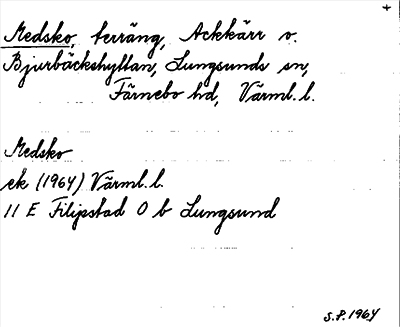 Medsko, terräng, Ackkärr o.
Bjurbäckshyltan, Lungsunds sn,
Färnebo hd, Värml. l.
Medsko
ek (1964) Värml. l.
11 E Filipstad 0 b Lungsund
S.P. 1964